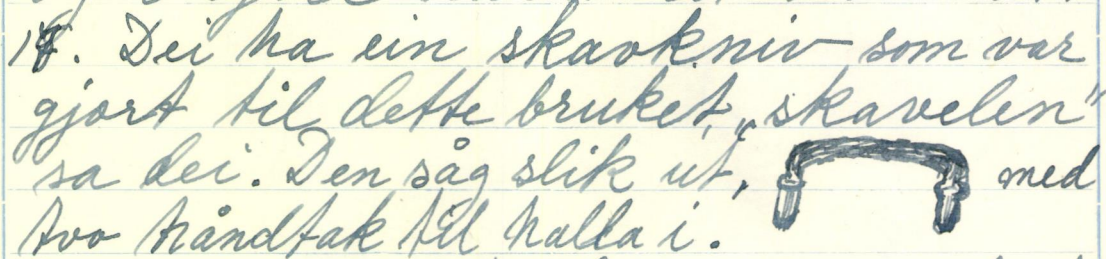 17. Dei ha ein skavkniv som var
gjort til dette bruket, „skavelen"
sa dei. Den såg slik ut, med
tvo håndtak til halla i.